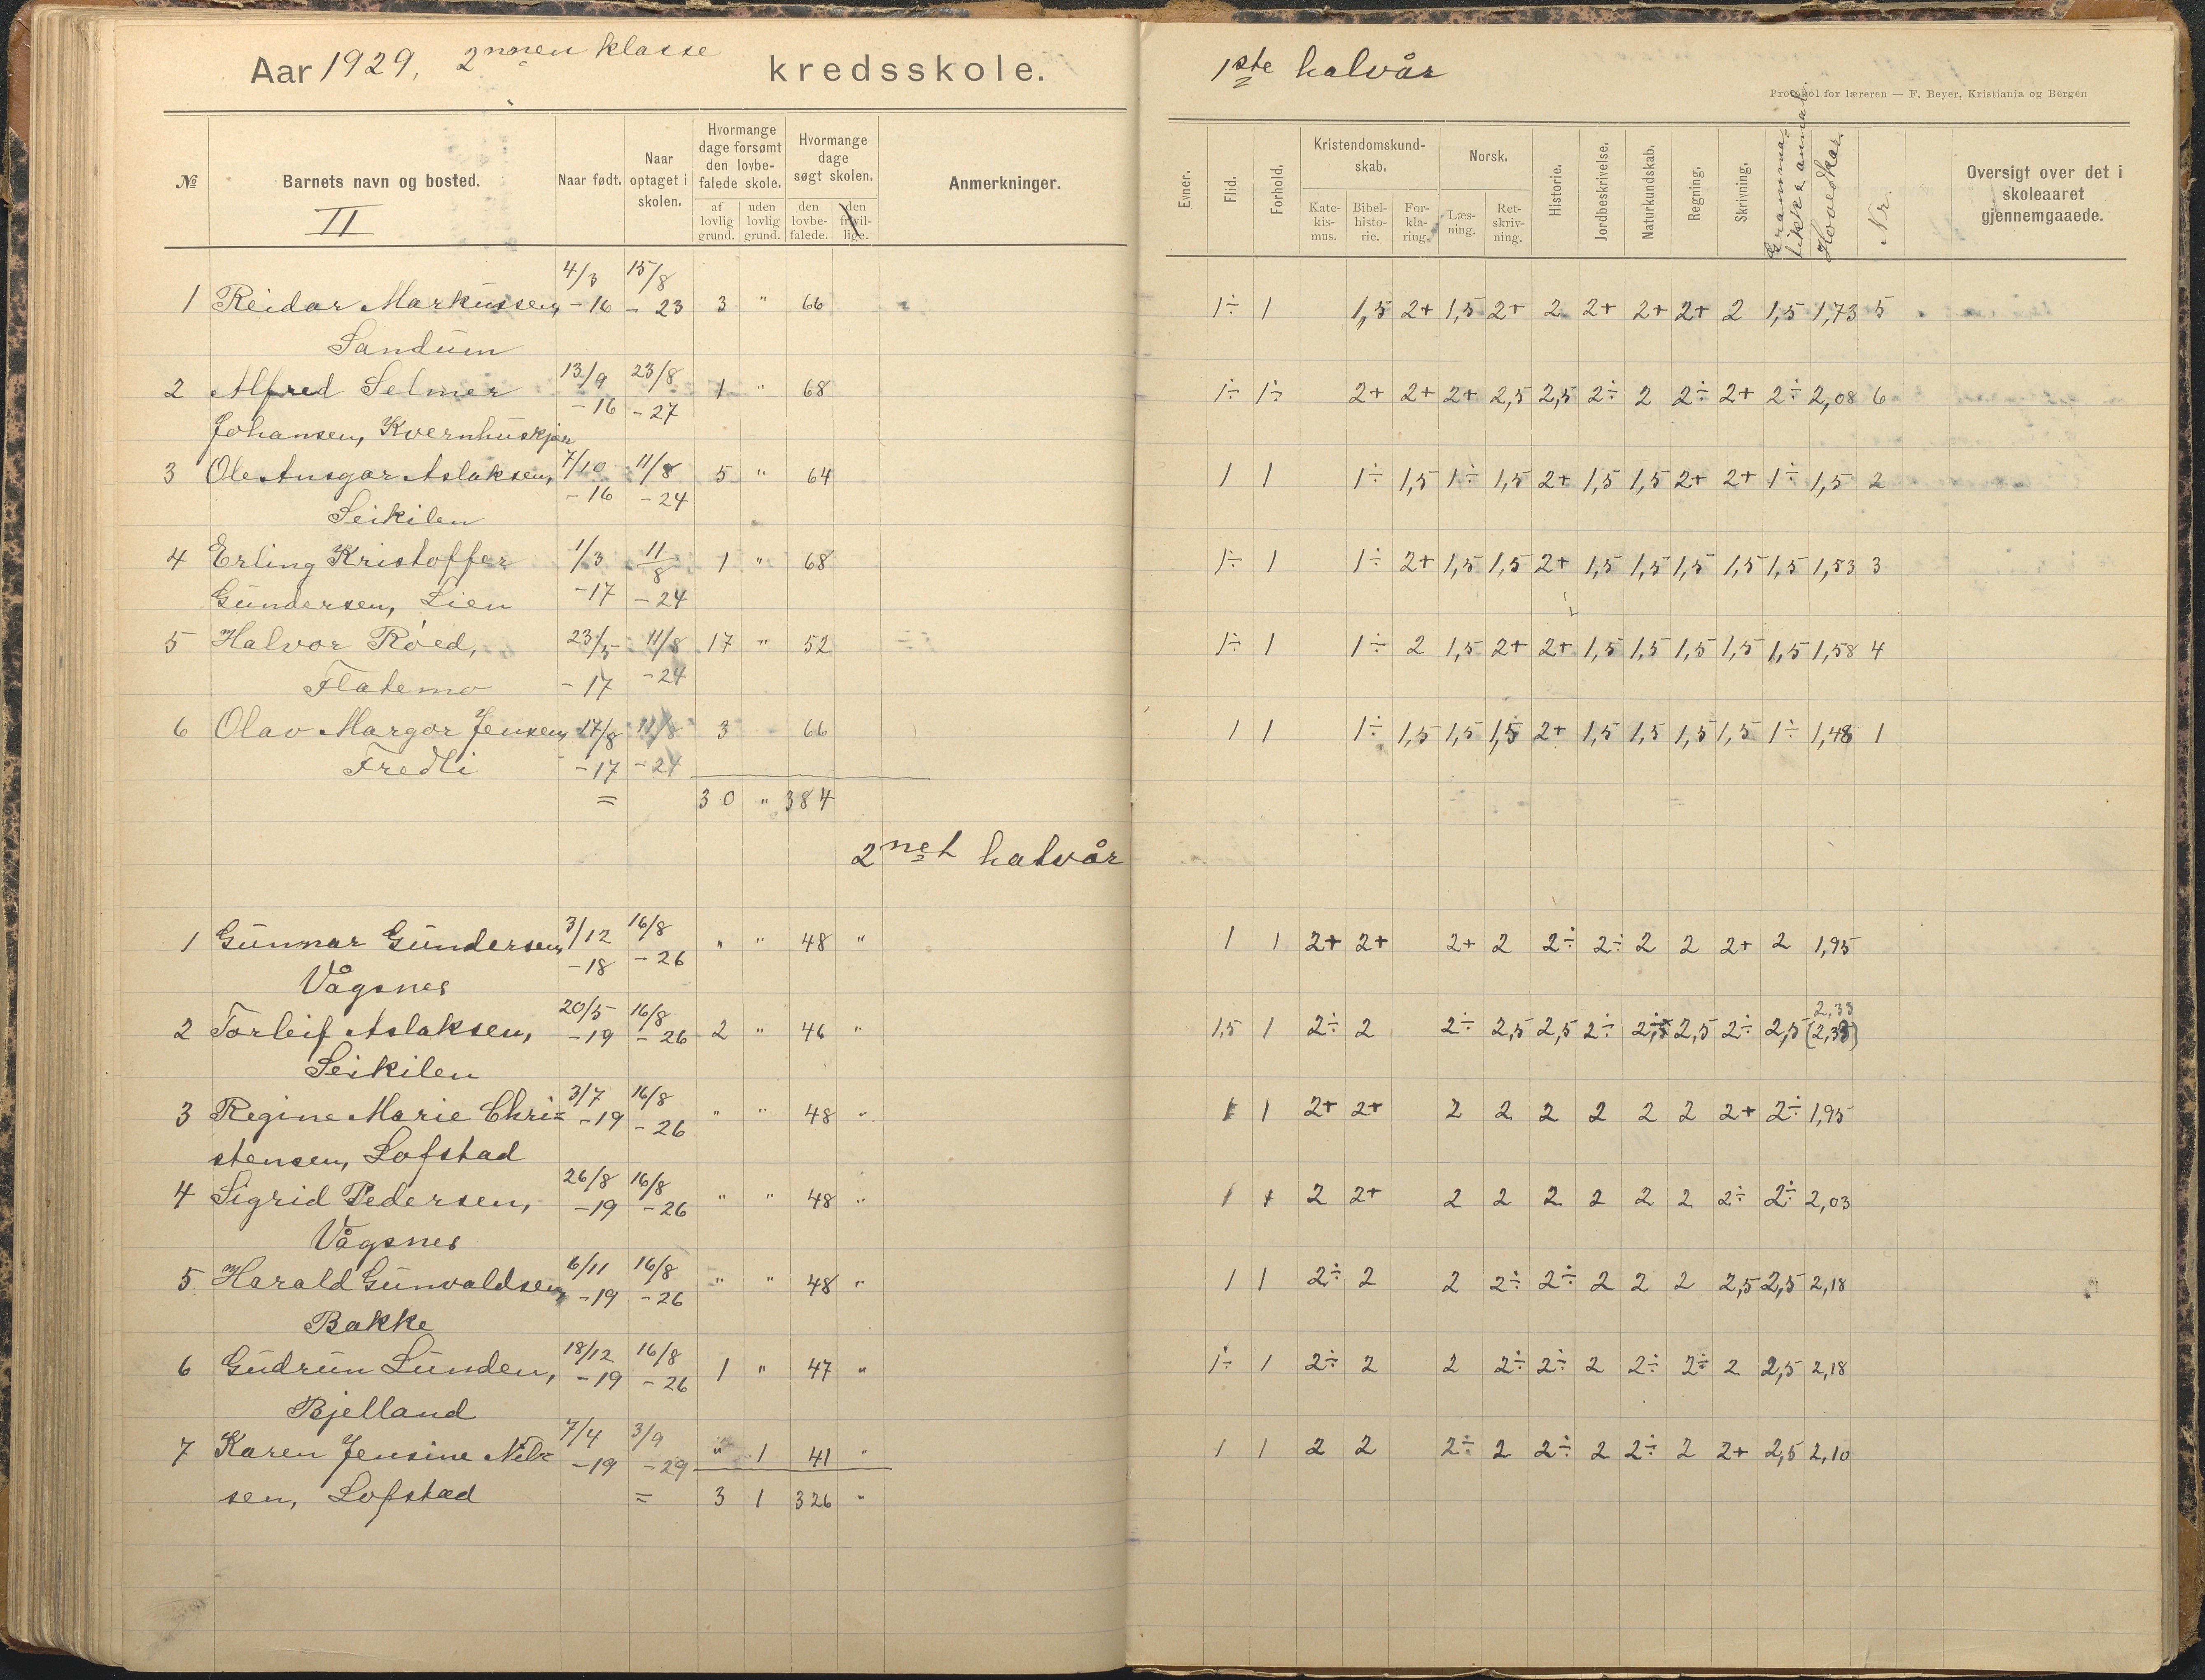 Aar 1929, 2nnen klasse kredsskole. 1ste halvår
Protokol for læreren — F. Beyer, Kristiania og Bergen
№ Barnets navn og bosted. II Naar født. Naar optaget i skolen. Hvormange dage forsømt den lovbefalede skole. af lovlig grund. uden lovlig grund. Hvormange dage søgt skolen. den lovbefalede. den frivillige. Anmerkninger.
Evner. Flid. Forhold. Kristendomskundskab. Katekismus. Bibelhistorie. Forklaring. Norsk. Læsning. Retskrivning. Historie. Jordbeskrivelse. Naturkundskab. Regning. Skrivning. Hovedkar. Nr. Oversigt over det i skoleaaret gjennemgaaede.
4/3 15/8
1 Reidar Markussen, -16 - 23 3 " 66 1÷ 1 1,5 2+ 1,5 2+ 2 2+ 2+ 2+ 2 1,5 1,73 5
Sandum
13/9 23/8
2 Alfred Selmer -16 -27 1 " 68 1÷ 1÷ 2+ 2+ 2+ 2,5 2,5 2÷ 2 2÷ 2+ 2÷ 2,08 6
Johansen, Kvernhuskjær
3 Ole Ansgar Aslaksen, 7/10 11/8 5 " 64 1 1 1÷ 1,5 1÷ 1,5 2+ 1,5 1,5 2+ 2+ 1÷ 1,5 2
-16 -24
Seikilen
4 Erling Kristoffer 1/3 11/8 1 " 68 1÷ 1 1÷ 2+ 1,5 1,5 2+ 1,5 1,5 1,5 1,5 1,5 1,53 3
Gundersen, Lien -17 -24
5 Halvor Røed, 23/5 11/8 17 " 52 1÷ 1 1÷ 2 1,5 2+ 2+ 1,5 1,5 1,5 1,5 1,5 1,58 4
Flatemo -17 -24
6 Olav Margor Jensen, 17/8 11/8 3 66 1 1 1÷ 1,5 1,5 1,5 2+ 1,5 1,5 1,5 1,5 1÷ 1,48 1
Fredli -17 -24
= 30 " 384
2net halvår
3/12 16/8
1 Gunnar Gundersen, -18 -26 " " 48 " 1 1 2+ 2+ 2+ 2 2÷ 2÷ 2 2 2+ 2 1,95
Vågsnes
20/5 16/8 2,33
2 Torleif Aslaksen, -19 -26 2 " 46 " 1,5 1 2÷ 2 2÷ 2,5 2,5 2÷ 2,5 2,5 2÷ 2,5 (2,33)
Seikilen
3/7 16/8
3 Regine Marie Chri= -19 -26 " " 48 " 1 1 2+ 2+ 2 2 2 2 2 2 2+ 2÷ 1,95
stensen, Lofstad
26/8 16/8
4 Sigrid Pedersen, -19 -26 " " 48 " 1 1 2 2+ 2 2 2 2 2 2 2÷ 2÷ 2,03
Vågsnes
6/11 16/8
5 Harald Gunvaldsen, -19 -26 " " 48 " 1 1 2÷ 2 2 2÷ 2÷ 2 2 2 2,5 2,5 2,18
Bakke
18/12 16/8
6 Gudrun Lunden, -19 -26 1 " 47 " 1÷ 1 2÷ 2 2 2÷ 2÷ 2 2÷ 2÷ 2 2,5 2,18
Bjelland
7/4 3/9
7 Karen Jensine Nil= -19 -29 " 1 41 " 1 1 2 2 2÷ 2 2÷ 2 2÷ 2 2+ 2,5 2,10
sen, Lofstad = 3 1 326 "